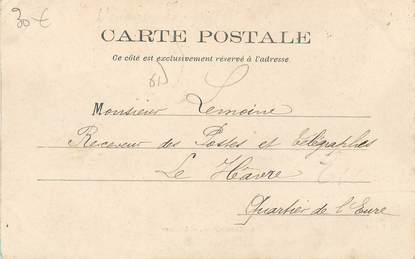 30 €
CARTE POSTALE
Ce côté est exclusivement réservé à l'adresse.
Monsieur Lemoine
Receveur des Postes et Télégraphes
Le Hâvre
Quartier de l'Eure